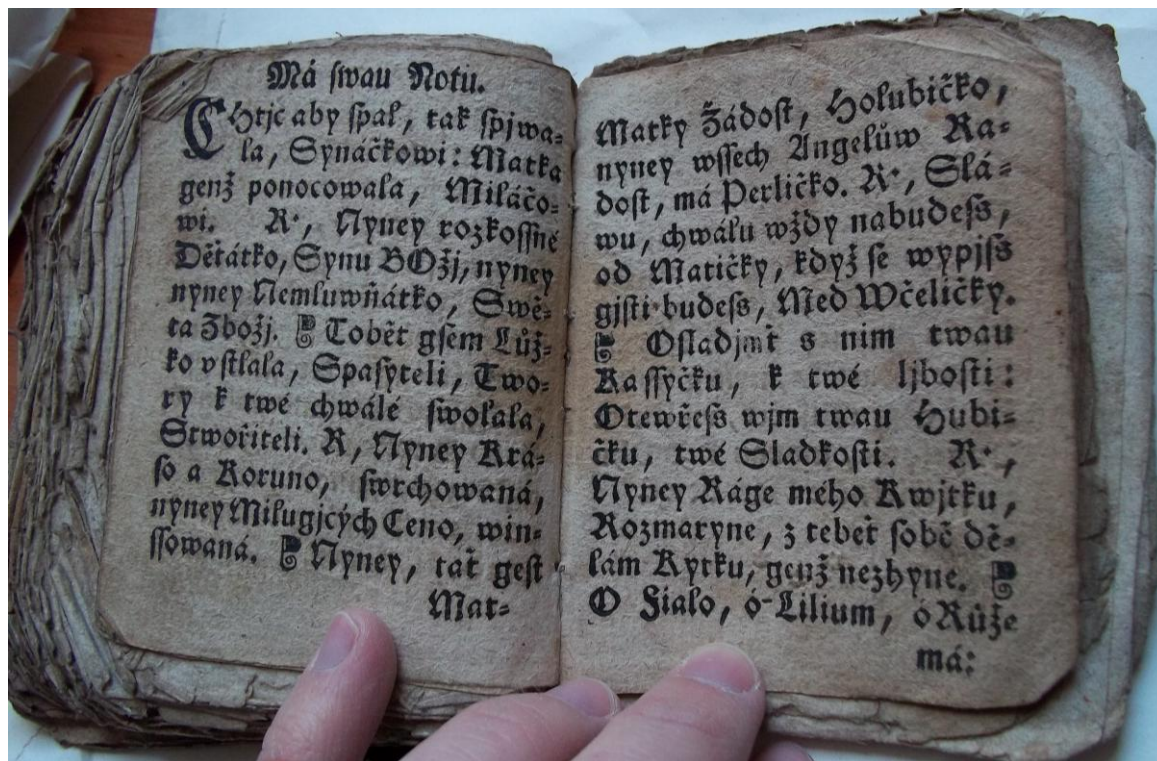 Má swau Notu.
CHtjc aby spal, tak spjwa=
la, Synáčkowi: Matka
genž ponocowala, Miláčo=
wi. R., Nyney rozkossné
Děťátko, Synu BOžj, nyney
nyney Nemluwňátko, Swě=
ta Zbožj. Tobět gsem Lůž=
ko vstlala, Spasyteli, Two=
ry k twé chwálé swolala,
Stwořiteli. R, Nyney Krá=
so a Koruno, swrchowaná,
nyney Milugjcých Ceno, win=
ssowaná. Nyney, tať gest
Mat=
Matky Žádost, Holubičko,
nyney wssech Angelůw Ra=
dost, má Perličko. R., Slá=
wu, chwálu wždy nabudess,
od Matičky, když se wypjss
gjsti budess, Med Wčeličky.
Osladjmť s nim twau
Kassyčku, k twé ljbosti:
Otewřess wjm twau Hubi=
čku, twé Sladkosti. R.,
Nyney Ráge mého Kwjtku,
Rozmaryne, z tebeť sobě dě=
lám Kytku, genž nezhyne.
O Fialo, ó Lilium, ó Růže
má: